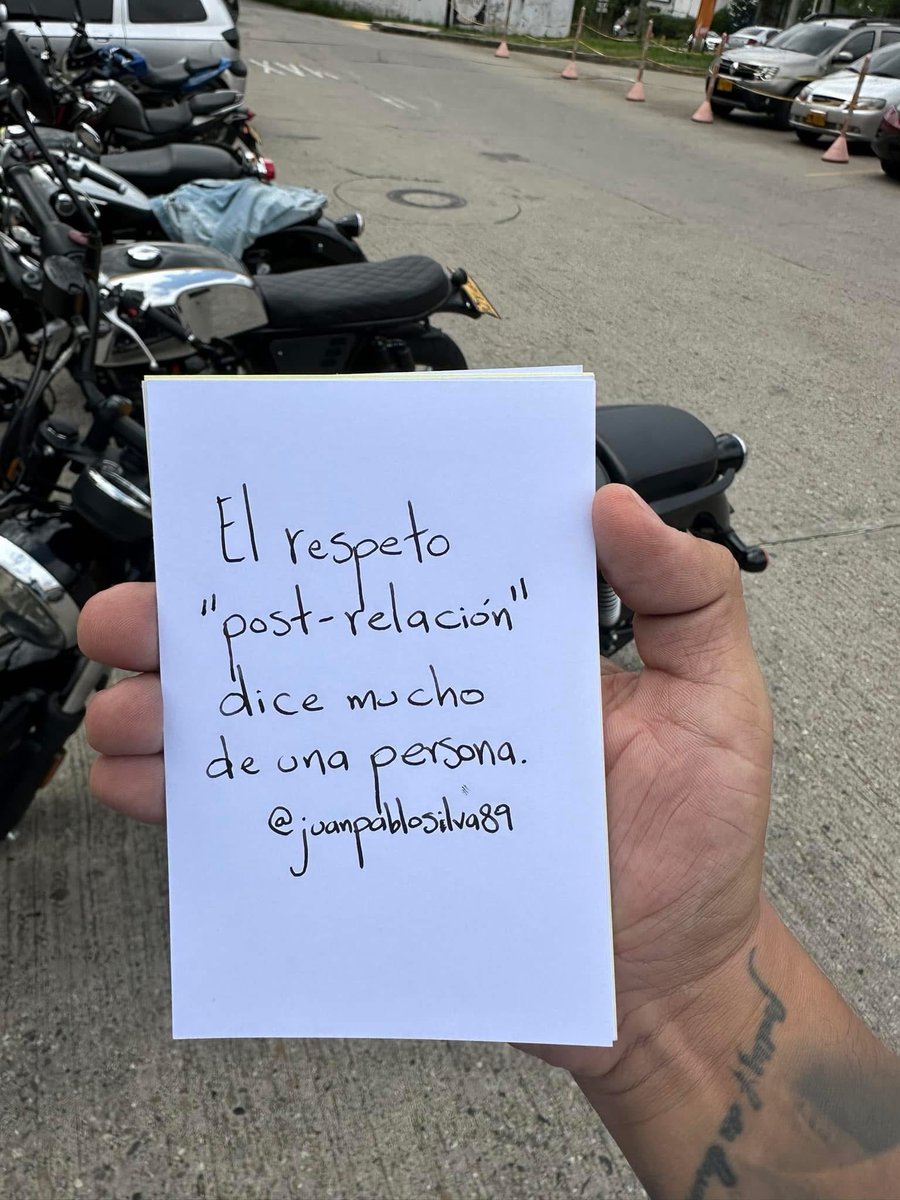 El respeto
"post-relación"
dice mucho
de una persona.
@juanpablosilva89